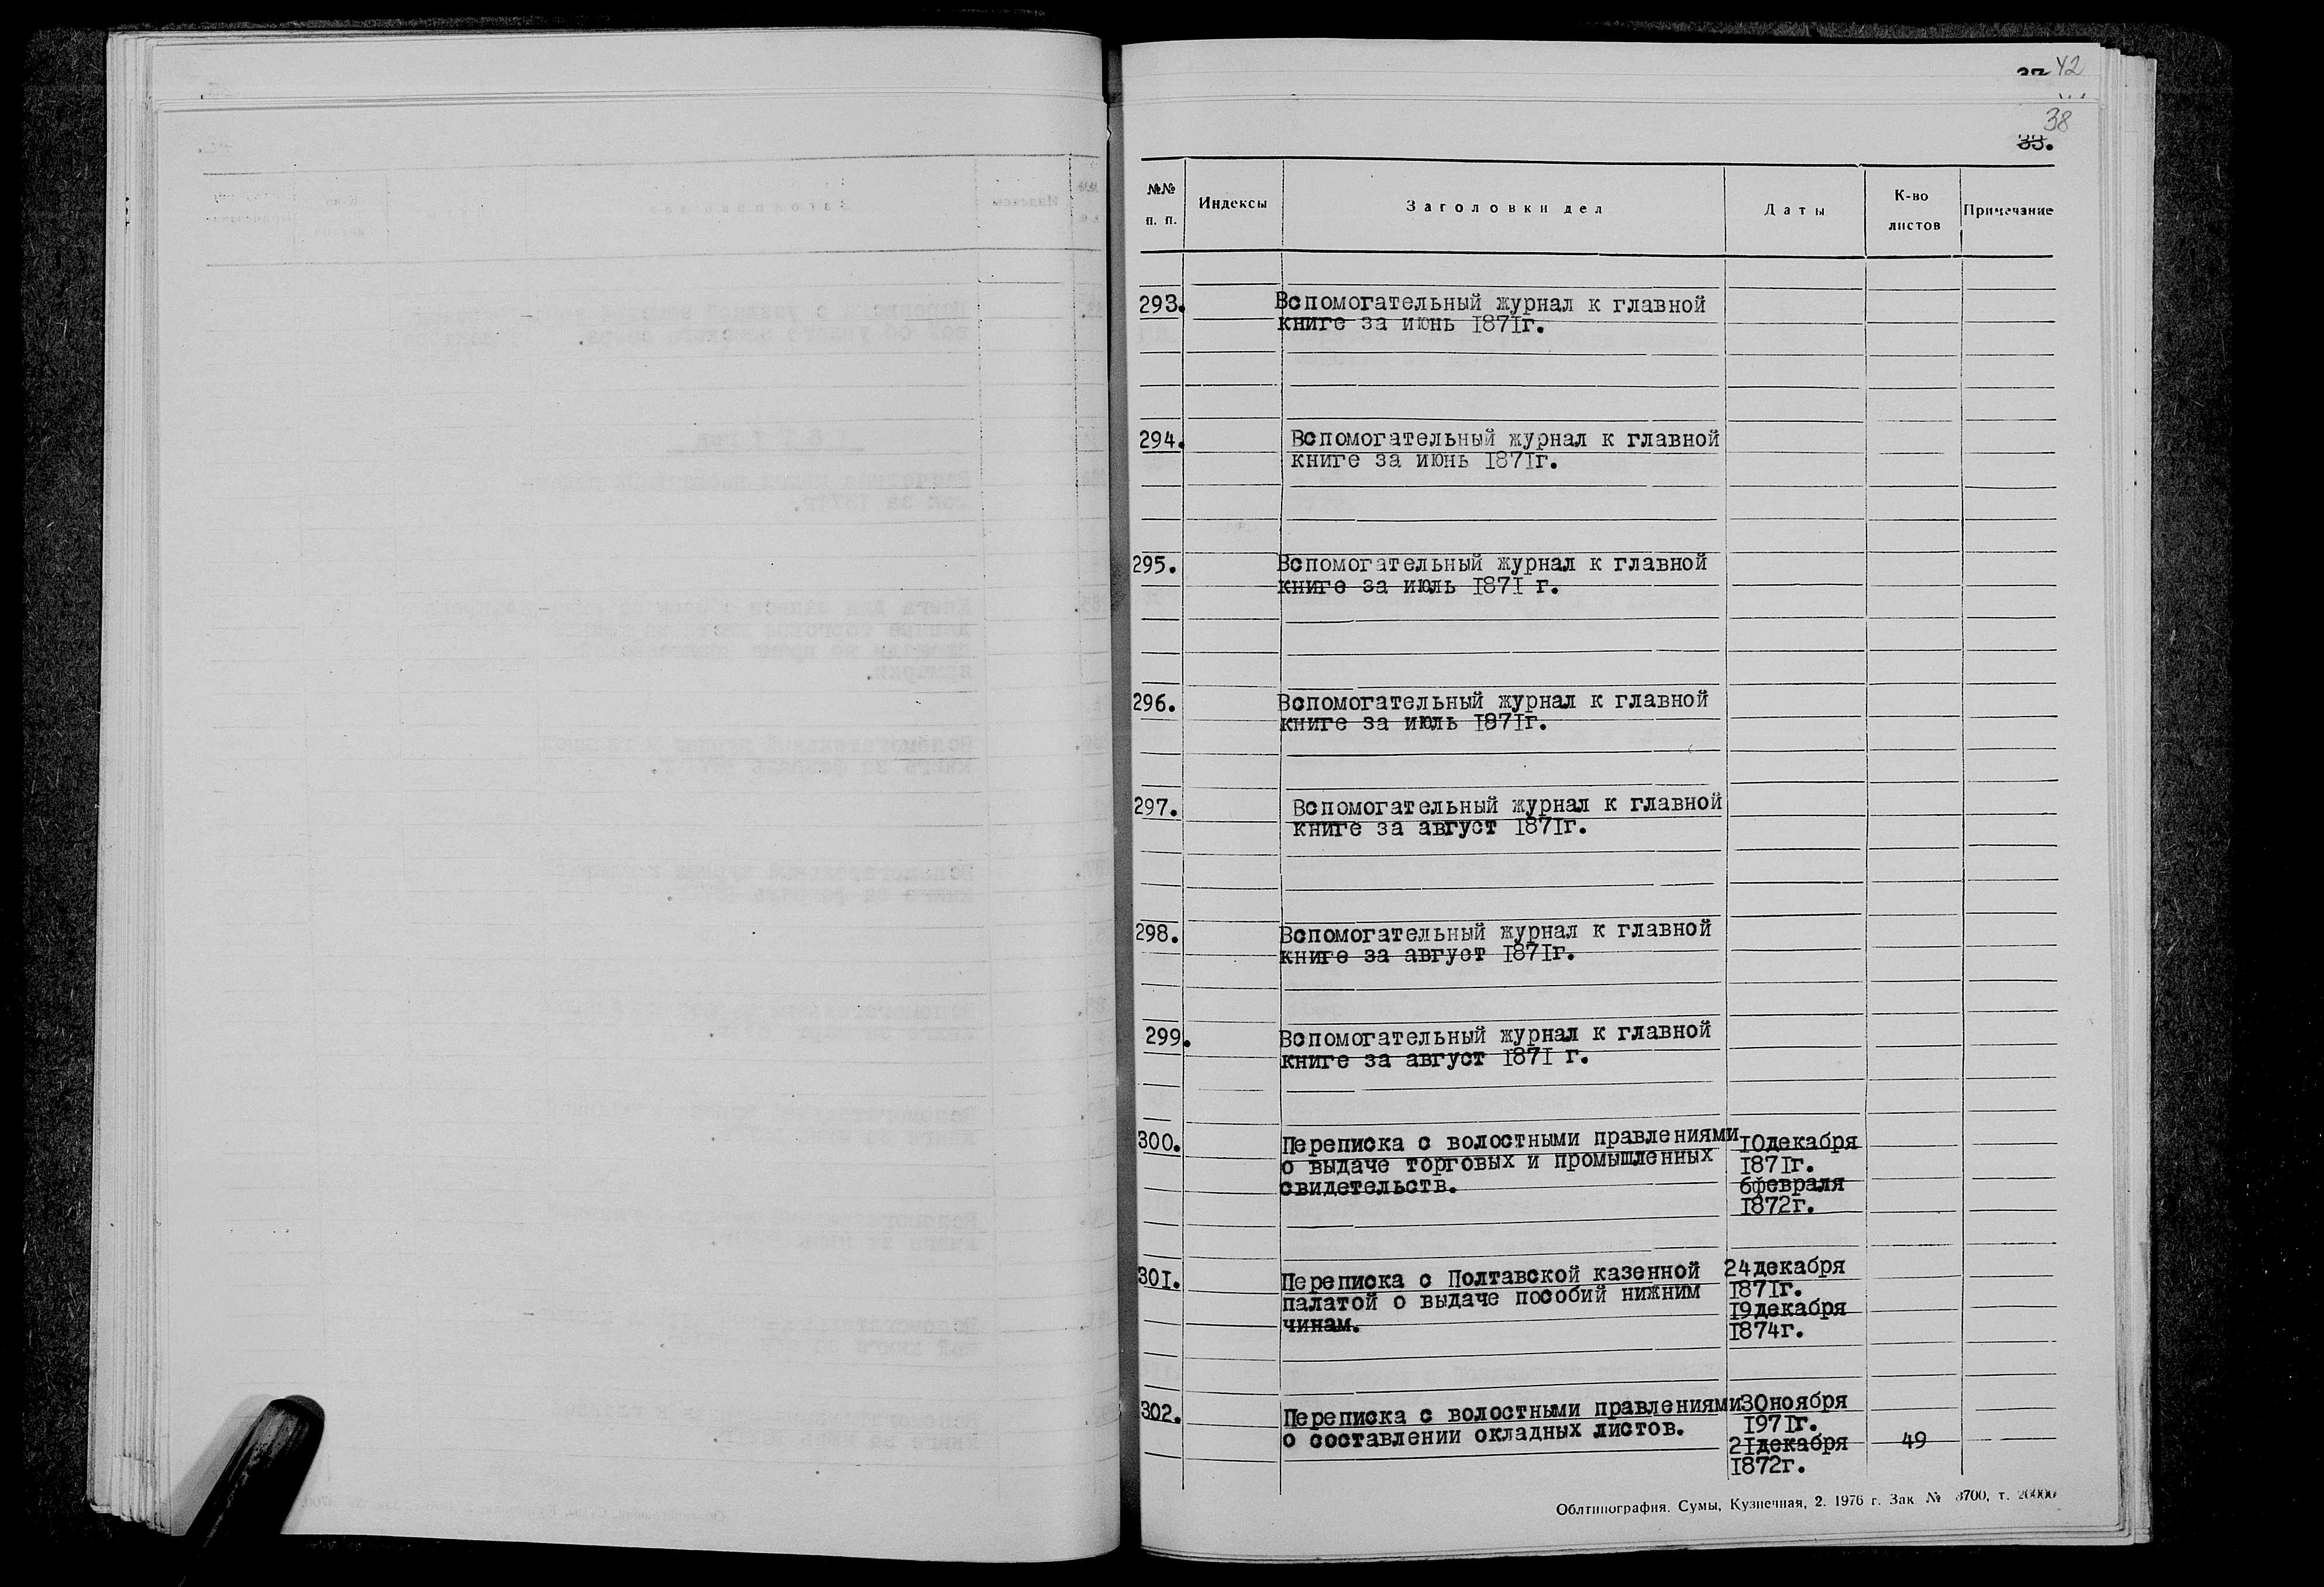 42
38
33.
№№ п. п.
Индексы
Заголовки дел
Даты
К-во листов
Примечание
293. Вспомогательный журнал к главной
книге за июнь 1871г.
294. Вспомогательный журнал к главной
книге за июнь 1871г.
295. Вспомогательный журнал к главной
книге за июль 1871 г.
296. Вспомогательный журнал к главной
книге за июль 1871г.
297. Вспомогательный журнал к главной
книге за август 1871г.
298. Вспомогательный журнал к главной
книге за август 1871г.
299. Вспомогательный журнал к главной
книге за август 1871 г.
300. Переписка с волостными правлениями 10декабря
о выдаче торговых и промышленных 1871г.
свидетельств. 6февраля
1872г.
301. Переписка с Полтавской казенной 24декабря
палатой о выдаче пособий нижним 1871г.
чинам. 19декабря
1874г.
302. Переписка с волостными правлениями 30ноября
о составлении окладных листов. 1971г.
21декабря 49
1872г.
Облтипография. Сумы, Кузнечная, 2. 1976 г. Зак. № 3700, т. 20000